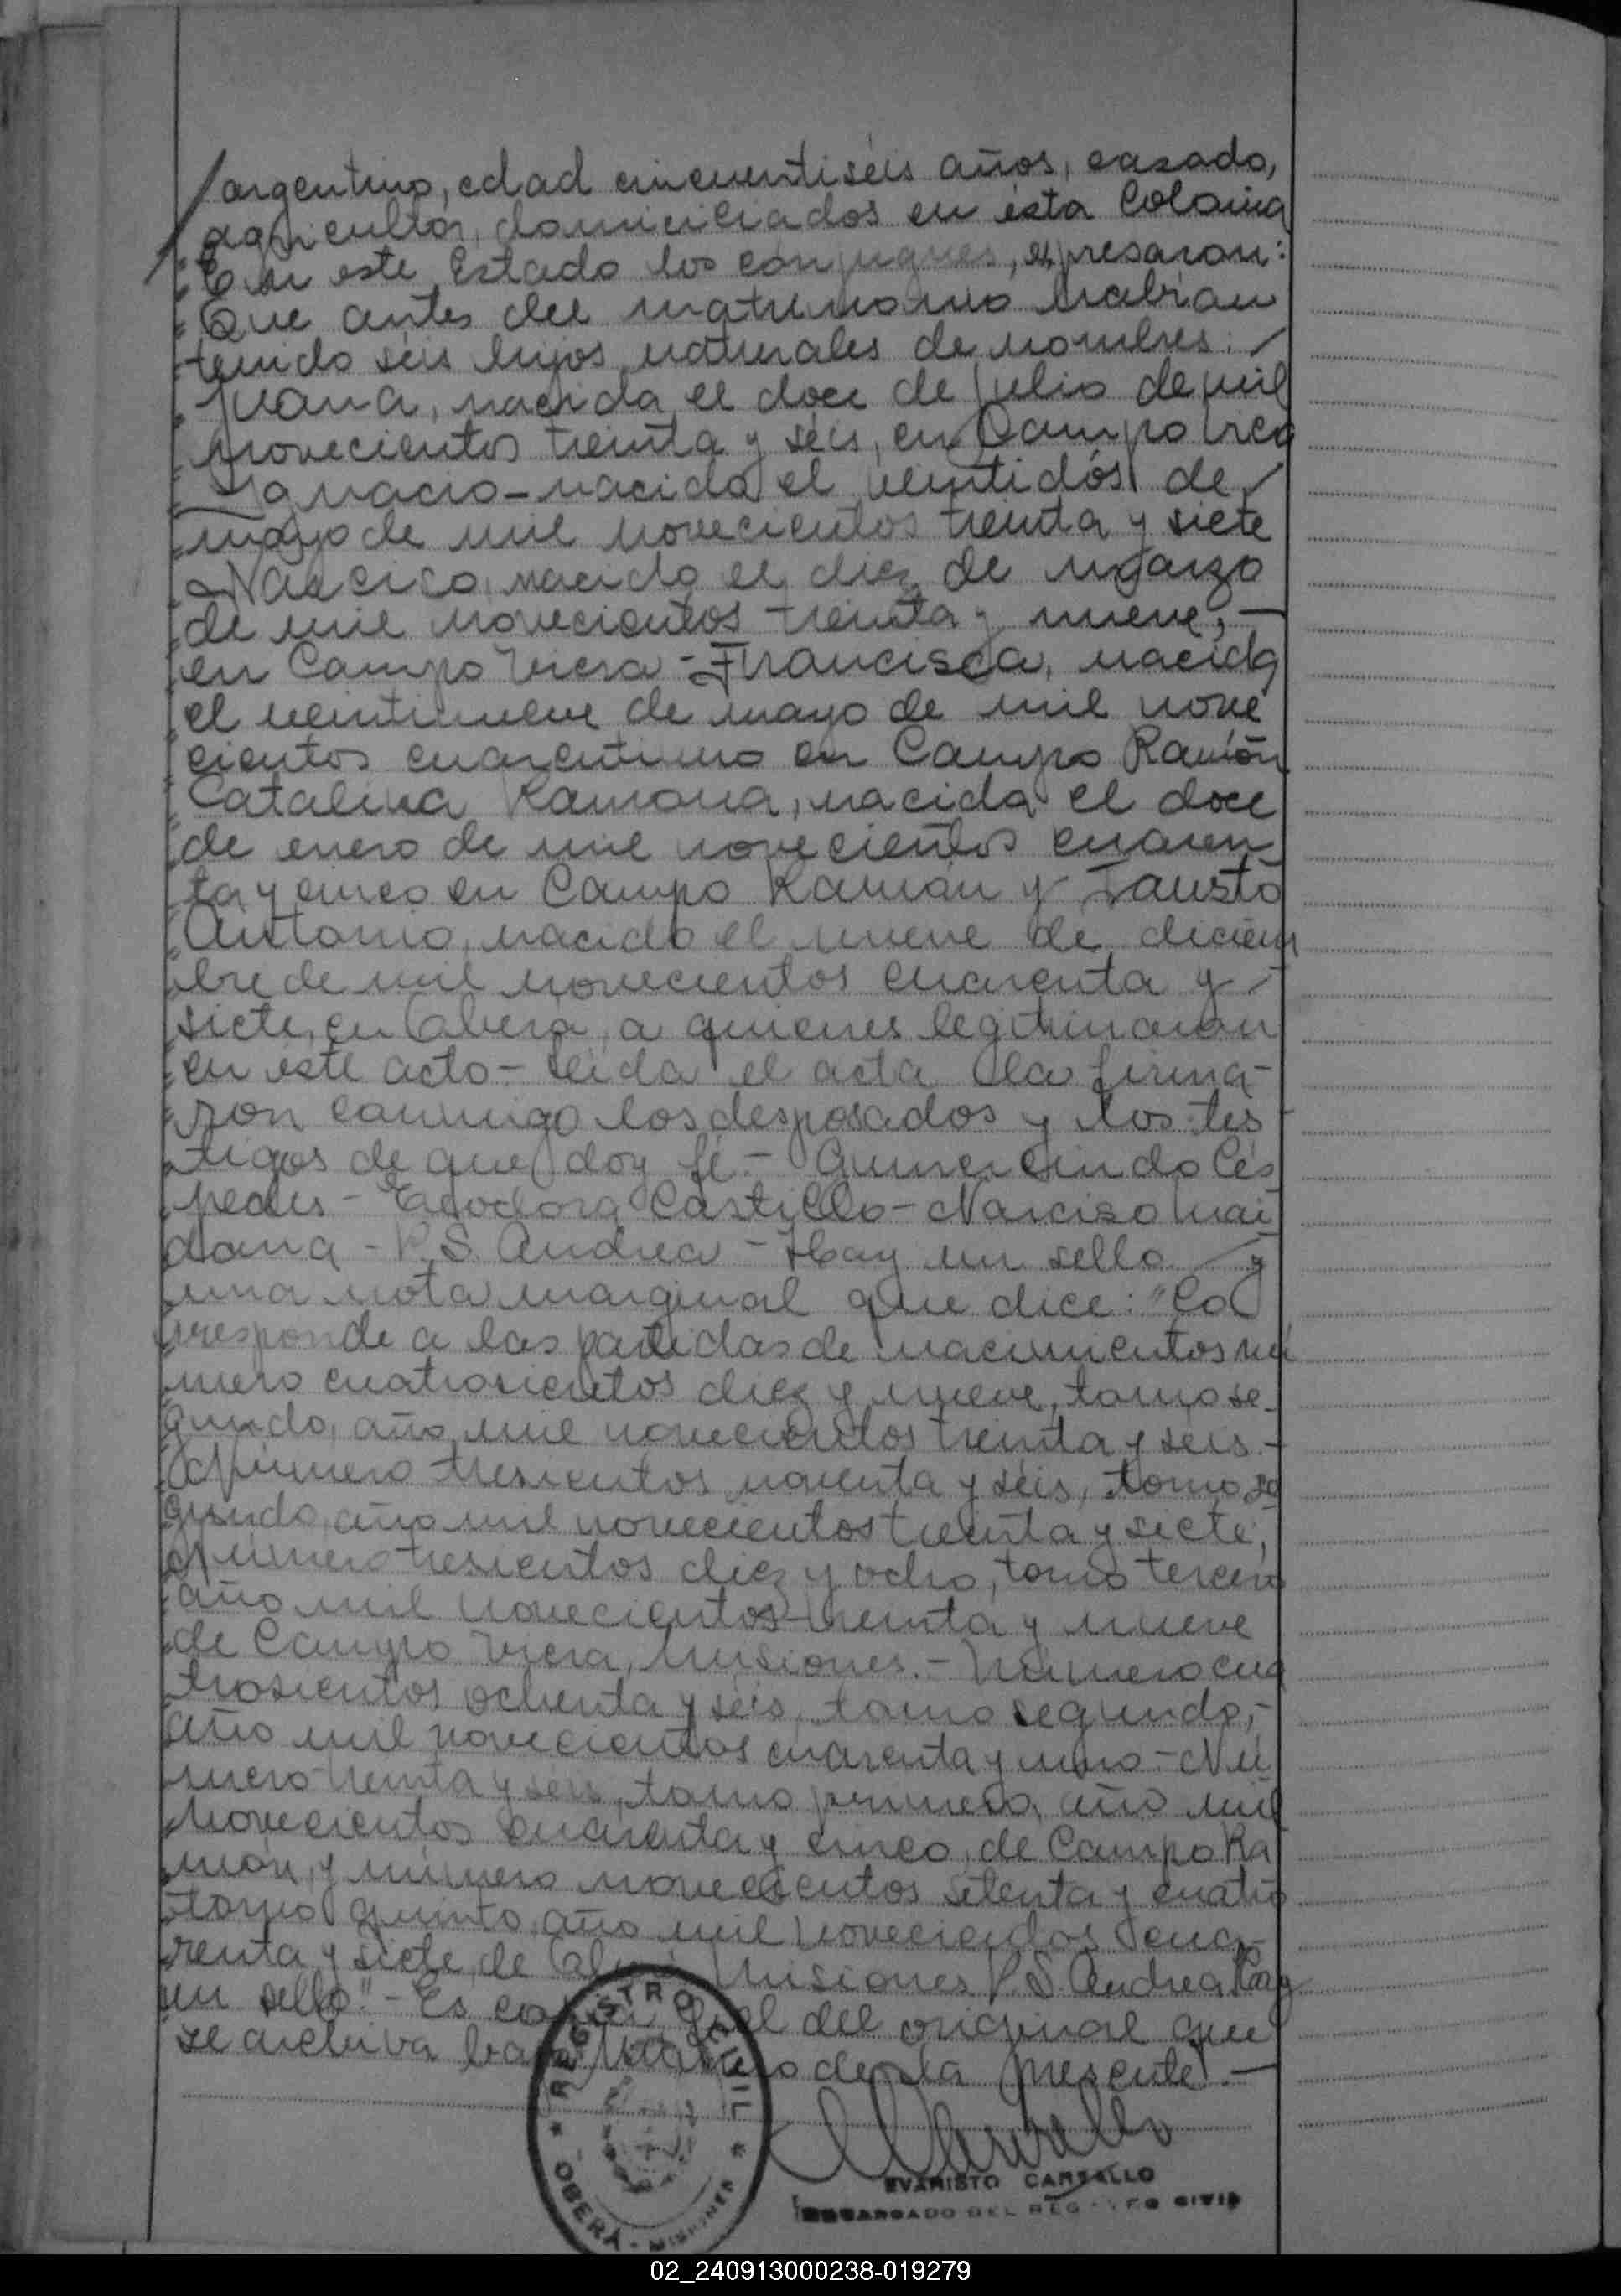 argentino, edad cincuentiséis años, casado,
agricultor, domiciliados en ésta Colonia
En este Estado los cónyugues, expresaron:
Que antes del matrimonio habían
tenido séis hijos naturales de nombres:
Juana, nacida el doce de julio de mil
novecientos treinta y séis, en Campo Viera
Ignacio - nacido el veintidós de
mayo de mil novecientos treinta y siete
Narciso, nacido el diez de marzo
de mil novecientos treinta y nueve, -
en Campo Viera - Francisca, nacida
el veintinueve de mayo de mil nove
cientos cuarentiuno en Campo Ramón
Catalina Ramona, nacida el doce
de enero de mil novecientos cuaren
ta y cinco en Campo Ramón y Fausto
Antonio, nacido el nueve de diciem
bre de mil novecientos cuarenta y
siete, en Oberá, a quienes legitimaron
en este acto - Leída el acta la firma-
ron conmigo los desposados y los tes
tigos de que doy fé. - Gumercindo Cés
pedes - Teodora Castillo - Narciso Mai
dana - P. S. Andrea - Hay un sello y
una nota marginal que dice: "Co
rresponde a las partidas de nacimientos nú
mero cuatrosientos diez y nueve, tomo se-
gundo, año mil novecientos treinta y séis. -
Número tresientos noventa y séis, tomo se
gundo, año mil novecientos treinta y siete,
Número tresientos diez y ocho, tomo tercero
año mil novecientos treinta y nueve
de Campo Viera, Misiones. - Número cua
trosientos ochenta y séis, tomo segundo, -
año mil novecientos cuarenta y uno - Nú
mero treinta y séis, tomo primero, año mil
novecientos cuarenta y cinco, de Campo Ra
món, y número novecientos setenta y cuatro
tomo quinto, año mil novecientos cua-
renta y siete, de Oberá Misiones P. S. Andrea Hay
un sello." - Es copia fiel del original que
se archiva bajo número de la presente. -
REGISTRO CIVIL
OBERÁ - MISIONES
EVARISTO CARBALLO
ENCARGADO DEL REGISTRO CIVIL
02_240913000238-019279